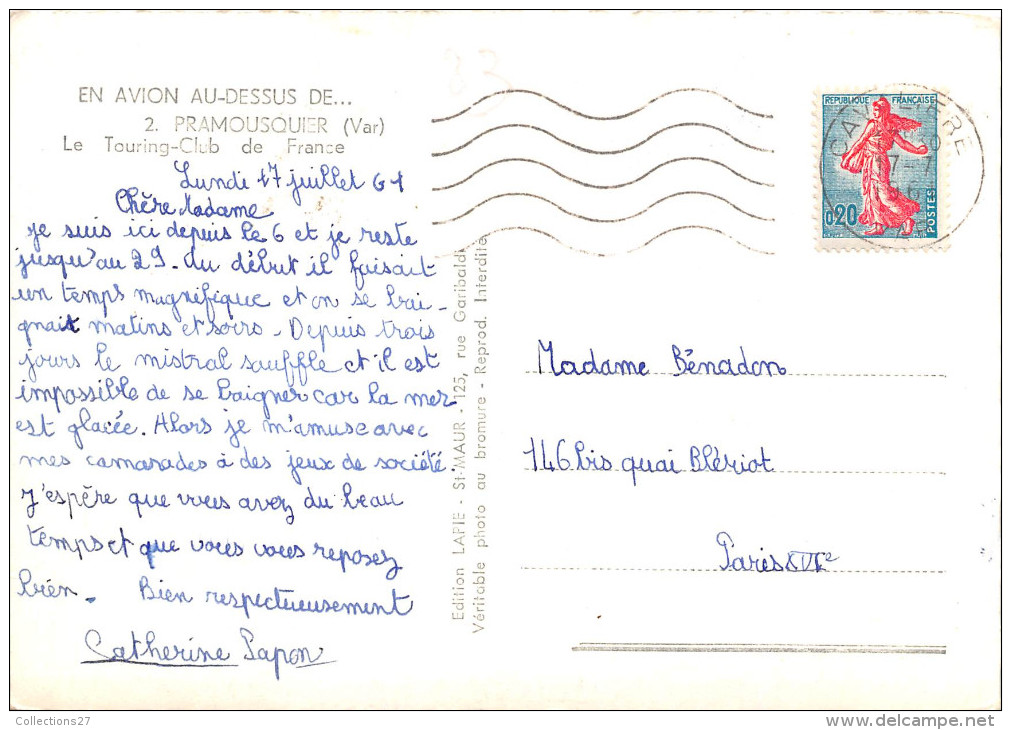 EN AVION AU-DESSUS DE...
2. PRAMOUSQUIER (Var)
Le Touring-Club de France
Lundi 17 juillet 61
Chère Madame
je suis ici depuis le 6 et je reste
jusqu'au 29. Au début il faisait
un temps magnifique et on se bai-
gnait matins et soirs. Depuis trois
jours le mistral souffle et il est
impossible de se baigner car la mer
est glacée. Alors je m'amuse avec
mes camarades à des jeux de société.
J'espère que vous avez du beau
temps et que vous vous reposez
bien. Bien respectueusement
Catherine Papon
Edition LAPIE - St-MAUR - 125, rue Garibaldi
Véritable photo au bromure - Reprod. Interdite
REPUBLIQUE FRANÇAISE
0,20
POSTES
CAVALIERE
17-7
Madame Bénadon
146 bis quai Blériot
Paris XVIe
Collections27
www.delcampe.net